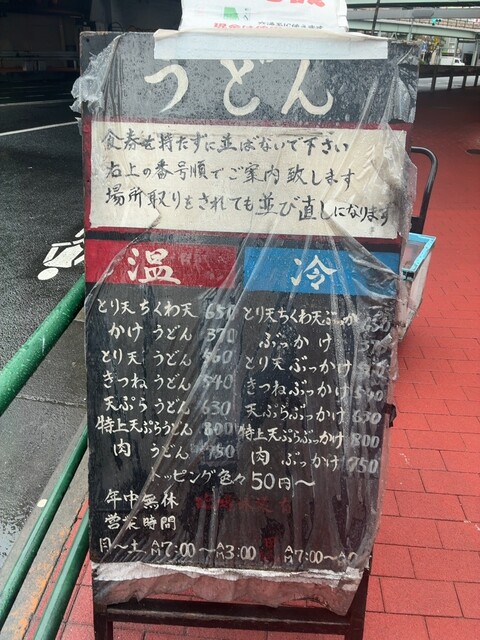 うどん
食券を持たずに並ばないで下さい
右上の番号順でご案内致します
場所取りをされても並び直しになります
温
とり天ちくわ天 650
かけ うどん 370
とり天 うどん 560
きつね うどん 540
天ぷら うどん 630
特上天ぷらうどん 800
肉 うどん 750
冷
とり天ちくわ天ぶっかけ 650
ぶっかけ
とり天ぶっかけ
きつねぶっかけ 540
天ぷらぶっかけ 630
特上天ぷらぶっかけ 800
肉 ぶっかけ 750
トッピング色々 50円〜
年中無休
営業時間
月〜土 AM7:00〜AM3:00
AM7:00〜